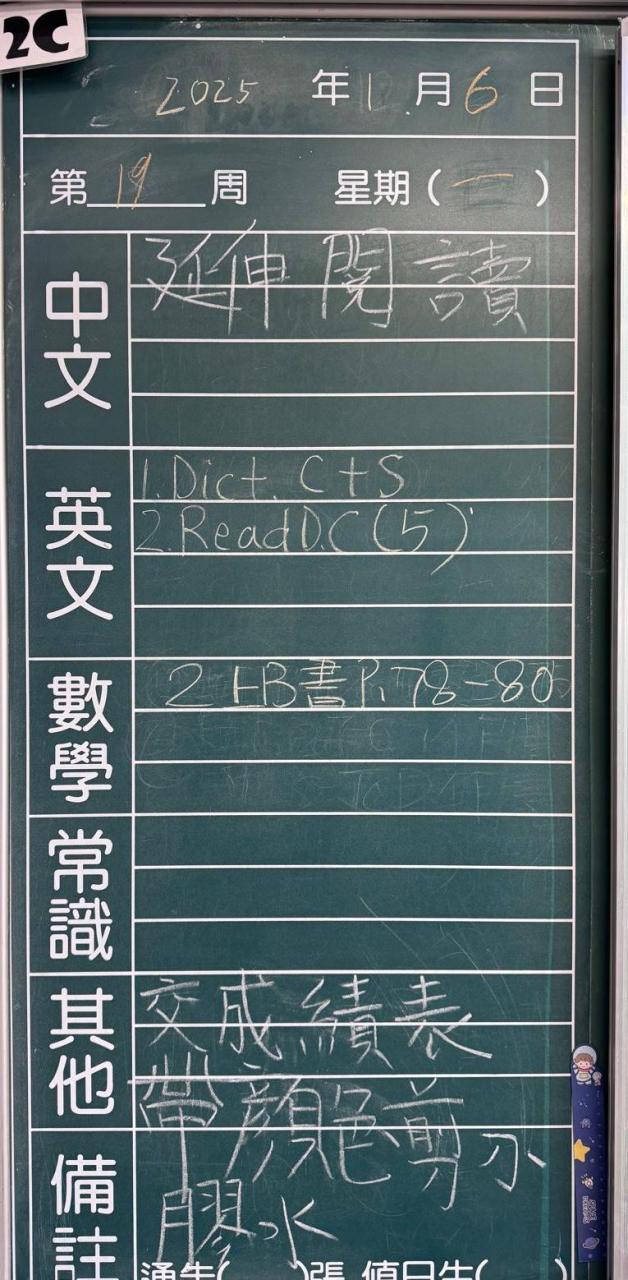 2C
2025 年 1 月 6 日
第 19 周 星期 ( 一 )
中文
延伸閱讀
英文
1. Dict. C+S
2. Read D.C (5)
數學
2上B書 P. 78-80
常識
其他
交成績表
帶顏色剪刀、
膠水
備註
通告( )張 值日生( )